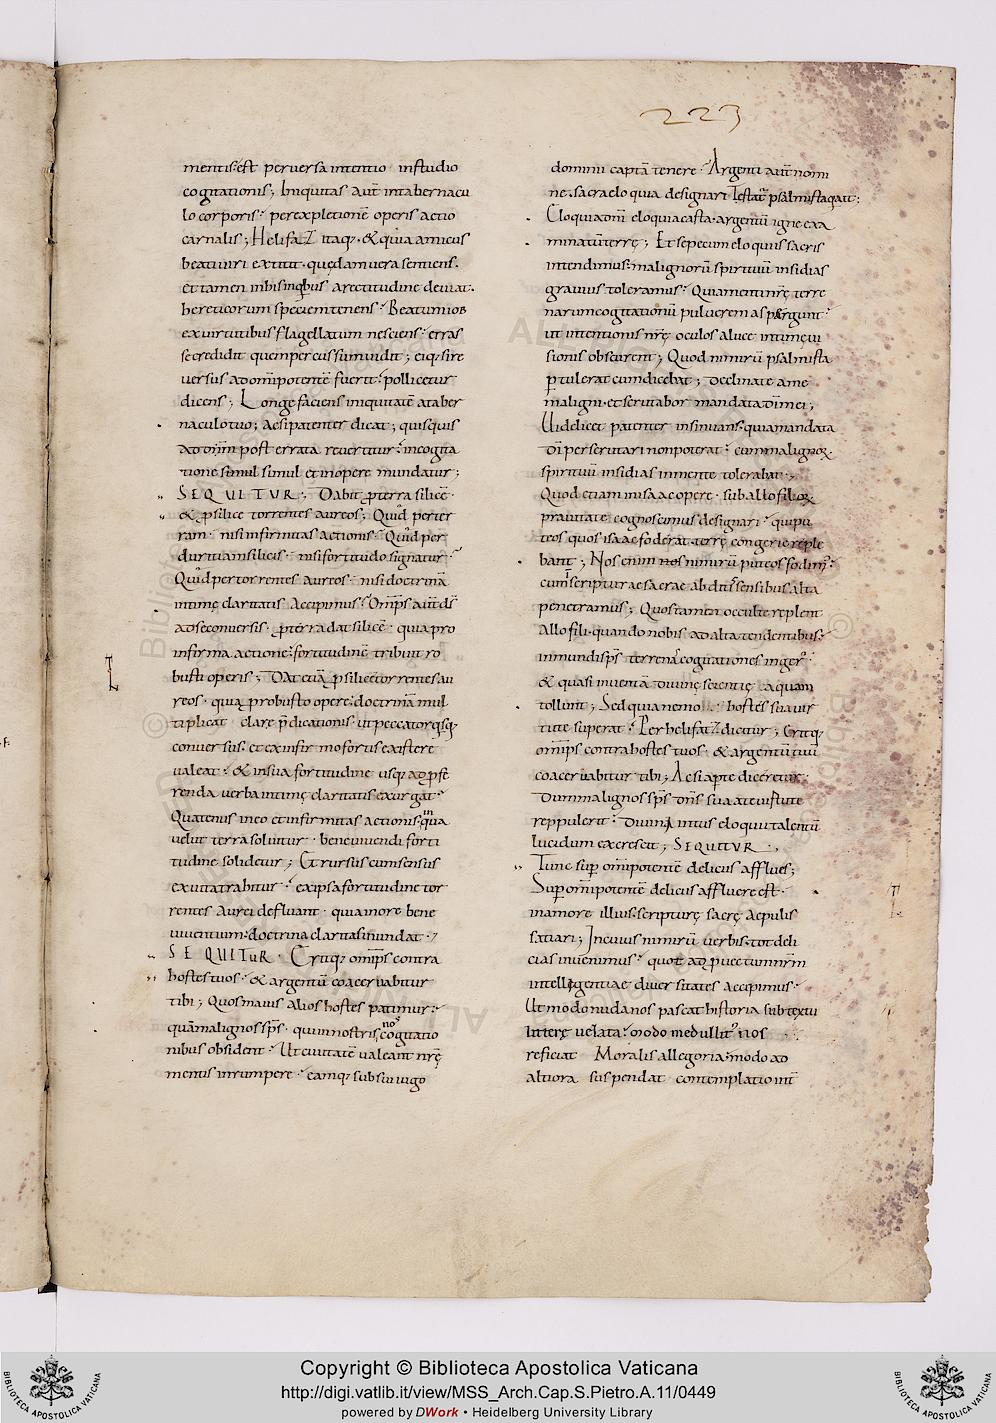 223
mentis÷ est perversa intentio in studio
cogitationis; Iniquitas aut̄ in tabernacu
lo corporis÷ per expletionē operis actio
carnalis; Helifaz itaq; & quia amicus
beati viri extitit quędam vera sentiens.
Et tamen in his in quibus a rectitudine deviat.
hereticorum speciem tenens÷ Beatum iob
ex virtutibus flagellatum nesciens÷ erras
se credidit quem percussum vidit; eiq; si re
versus ad omīpotentē fuerit÷ pollicetur
dicens; Longe facies iniquitatē a taber
naculo tuo; Ac si patenter dicat; quisquis
ad dnm post errata revertitur÷ in cogita
tione simul simul et in opere mundatur;
SEQUITUR; Dabit ꝓ terra silicē.
& ꝓ silice torrentes aureos; Quid per ter
ram nisi infirmitas actionis÷ Quid per
duritiam silicis nisi fortitudo signatur÷
Quid per torrentes aureos nisi doctrinā
intimę claritatis accipimus÷ Omīps aut̄ dſ
ad se conversis ꝓ terra dat silicē quia pro
infirma actione÷ fortitudinē tribuit ro
busti operis; Dat etiā ꝓ silice torrentes au
reos quia pro busto opere÷ doctrinā mul
tiplicat clarę p̄dicationis ut peccator q̇sq;
conversus et ex infirmo fortis existere
valeat÷ & in sua fortitudine usq; ad ꝓfe
renda verba intimę claritatis exurgat÷
Quatenus in eo et infirmitas actionis quasi in
velut terra solvitur bene vivendi forti
tudine solidetur; Et rursus cum sensus
exuitatrabitur÷ ex ipsa fortitudine tor
rentes aurei defluant quia in ore bene
viventium÷ doctrina claritas inundat;
SEQUITUR. Eritq; omīps contra
hostes tuos & argentū coacervabitur
tibi; Quos maius alios hostes patimur÷
quā malignos sp̄s qui in nostris nos cogitatio
nibus obsident÷ Ut civitatē valeant nr̄ę
mentis inrumpere÷ eamq; sub sui iugo
dominii captā tenere÷ Argenti aut̄ nomi
ne sacra eloquia designari Testat̄ psalmista q ait;
Eloquia dnī eloquia casta argentū igne exa
minatū terrę; Et sepe cum eloquiis sacris
intendimus÷ malignorū spirituū insidias
gravius toleramus÷ Quia menti nr̄ę terre
narum cogitationū pulverem aspergunt÷
ut intentionis nr̄ę oculos a luce intimę vi
sionis obscurent; Quod nimirū psalmista
ꝑtulerat cum dicebat; Declinate a me
maligni et scrutabor mandata dī mei;
Videlicet patenter insinuans÷ quia mandata
dī perscrutari non poterat÷ cum malignoꝝ
spirituū insidias in mente tolerabat;
Quod etiam in isaac opere sub allofiloꝝ
pravitate cognoscimus designari÷ qui pu
teos quos isaac foderat terrę congerie reple
bant; Nos enim nos nimirū puteos fodim̄÷
cum in scripturae sacrae abditis sensibus alta
penetramus; Quos tamen occulte replent
Allofili quando nobis ad alta tendentibus÷
inmundi sp̄s terrenas cogitationes inger̄
& quasi inventā divinę scientię aquam
tollunt; Sed quia nemo hostes sua vir
tute superat÷ Per helifaz dicitur; Eritq;
omīps contra hostes tuos & argentū tuū
coacervabitur tibi; Ac si aperte diceretur
Dum malignos sp̄s dn̄s sua a te virtute
reppulerit÷ Divini intus eloquii talentū
lucidum excrescit; SEQUITUR.
Tunc suꝑ omīpotentē deliciis afflues;
Suꝑ omīpotentē deliciis affluere est
in amore illius scripturę sacrę aepulis
satiari; In cuius nimirū verbis tot deli
cias invenimus÷ quot ad ꝓvectum nr̄m
intellegentiae diversitates accipimus÷
Ut modo nudanos pascat historia sub textu
litterę velata÷ modo medullit̓ nos
reficiat Moralis allegoria÷ modo ad
altiora suspendat contemplatio int̄
Copyright © Biblioteca Apostolica Vaticana
http://digi.vatlib.it/view/MSS_Arch.Cap.S.Pietro.A.11/0449
powered by DWork • Heidelberg University Library